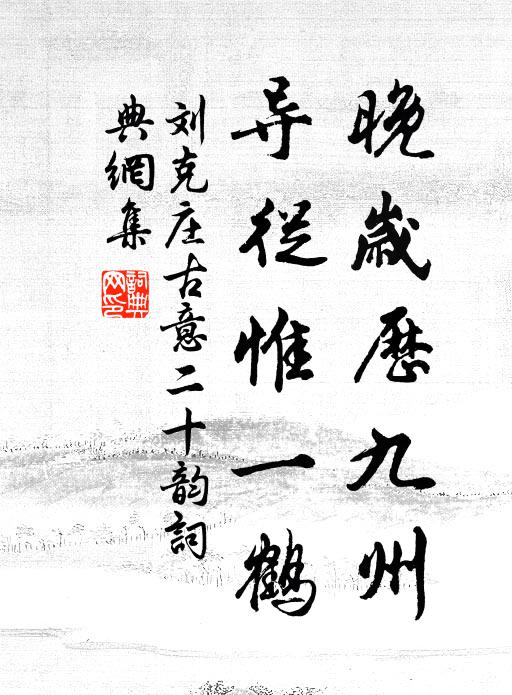 晚歲歷九州
导從惟一鶴
刘克庄古意二十韵詞
典網集
詞典网印